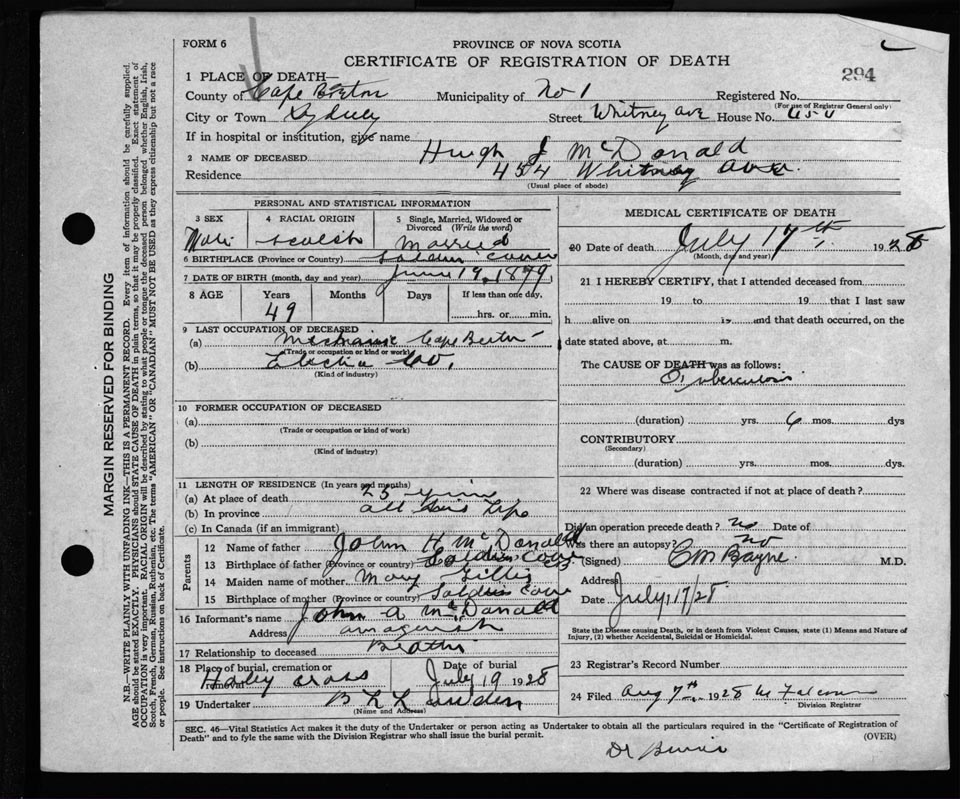 FORM 6
PROVINCE OF NOVA SCOTIA
CERTIFICATE OF REGISTRATION OF DEATH
294
1 PLACE OF DEATH—
County of Cape Breton Municipality of No 1 Registered No.
(For use of Registrar General only)
City or Town Sydney Street Whitney Ave House No. 454
If in hospital or institution, give name
2 NAME OF DECEASED Hugh J McDonald
Residence 454 Whitney Ave.
(Usual place of abode)
PERSONAL AND STATISTICAL INFORMATION
3 SEX 4 RACIAL ORIGIN 5 Single, Married, Widowed or Divorced (Write the word)
Male Scotch Married
6 BIRTHPLACE (Province or Country) Soldiers Cove
7 DATE OF BIRTH (month, day and year) June 19, 1879
8 AGE Years Months Days If less than one day,
49 hrs. or min.
9 LAST OCCUPATION OF DECEASED
(a) Mechanic Cape Breton
(Trade or occupation or kind of work)
(b) Electric Co.
(Kind of industry)
10 FORMER OCCUPATION OF DECEASED
(a)
(Trade or occupation or kind of work)
(b)
(Kind of industry)
11 LENGTH OF RESIDENCE (In years and months)
(a) At place of death 25 years
(b) In province all his life
(c) In Canada (if an immigrant)
Parents
12 Name of father John H McDonald
13 Birthplace of father (Province or country) Soldiers Cove
14 Maiden name of mother Mary Gillis
15 Birthplace of mother (Province or country) Soldiers Cove
16 Informant's name John A McDonald
Address
17 Relationship to deceased
18 Place of burial, cremation or removal Holy Cross Date of burial July 19 1928
19 Undertaker
(Name and Address)
MEDICAL CERTIFICATE OF DEATH
20 Date of death July 17th 1928
(Month, day and year)
21 I HEREBY CERTIFY, that I attended deceased from
19 to 19 that I last saw
h alive on 19 and that death occurred, on the
date stated above, at m.
The CAUSE OF DEATH was as follows:
Tuberculosis
(duration) yrs. 6 mos. dys
CONTRIBUTORY
(Secondary)
(duration) yrs. mos. dys.
22 Where was disease contracted if not at place of death?
Did an operation precede death? no Date of
Was there an autopsy? no
(Signed) C M Bayne. M.D.
Address
Date July 17/28
State the Disease causing Death, or in death from Violent Causes, state (1) Means and Nature of
Injury, (2) whether Accidental, Suicidal or Homicidal.
23 Registrar's Record Number
24 Filed Aug 7th 1928
Division Registrar
SEC. 46—Vital Statistics Act makes it the duty of the Undertaker or person acting as Undertaker to obtain all the particulars required in the "Certificate of Registration of
Death" and to fyle the same with the Division Registrar who shall issue the burial permit. (OVER)
Dr
MARGIN RESERVED FOR BINDING
N.B.—WRITE PLAINLY WITH UNFADING INK—THIS IS A PERMANENT RECORD. Every item of information should be carefully supplied.
AGE should be stated EXACTLY. PHYSICIANS should STATE CAUSE OF DEATH in plain terms, so that it may be properly classified. Exact statement of
OCCUPATION is very important. RACIAL ORIGIN will be described by stating to what people or tongue the deceased person belonged, whether English, Irish,
Scotch, French, German, Russian, Ruthenian, etc. The terms "AMERICAN" OR "CANADIAN" MUST NOT BE USED as they express citizenship but not a race
or people. See instructions on back of Certificate.